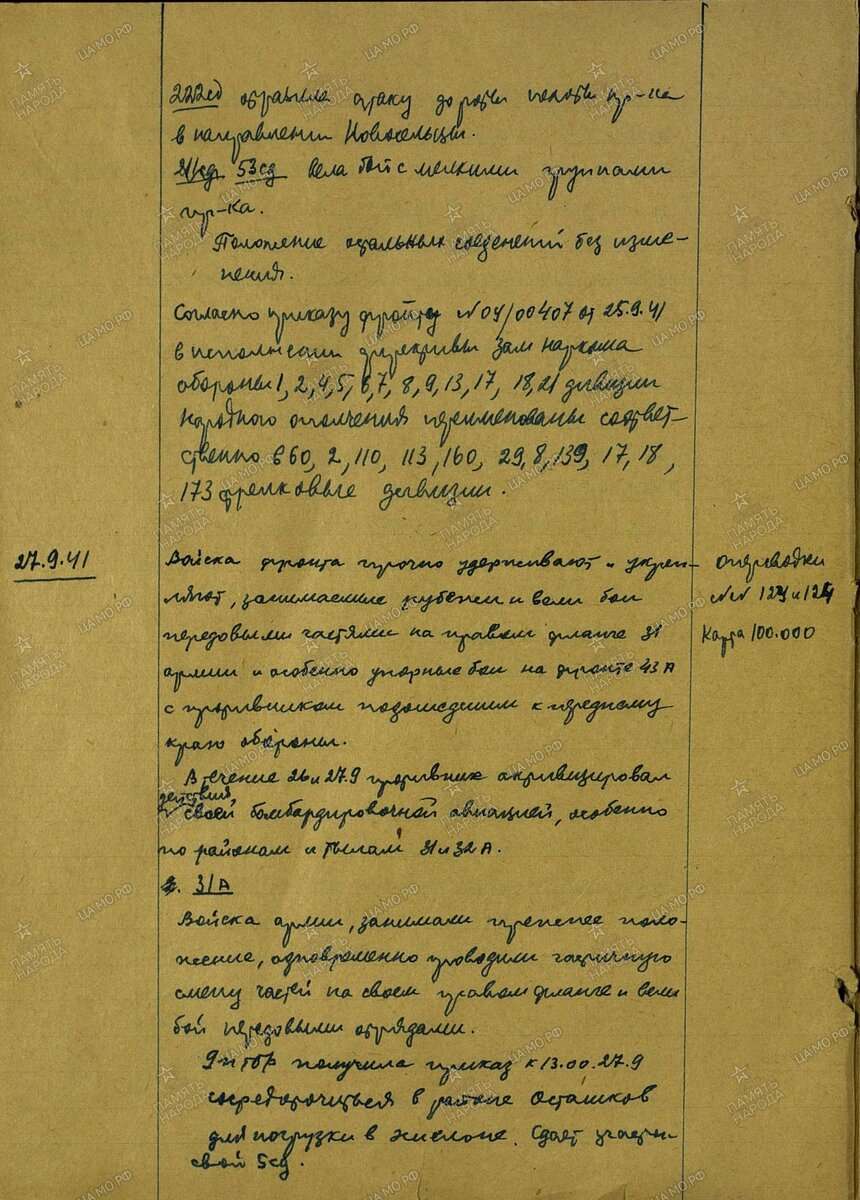 222сд отразила атаку до роты пехоты пр-ка
в направлении Новосельцы.
211сд, 53сд вела бой с мелкими группами
пр-ка.
Положение остальных соединений без изме-
нения.
Согласно приказу фронта №04/00407 от 25.9.41
в исполнении директивы зам наркома
обороны 1, 2, 4, 5, 6, 7, 8, 9, 13, 17, 18, 21 дивизии
народного ополчения переименованы соответ-
ственно в 60, 2, 110, 113, 160, 29, 8, 139, 17, 18,
173 стрелковые дивизии.
27.9.41
Войска фронта прочно удерживают и укреп-
ляют, занимаемые рубежи и вели бои
передовыми частями на правом фланге 31
армии и особенно упорные бои на фронте 43 А
с противником подошедшим к переднему
краю обороны.
В течение 26 и 27.9 противник активизировал
действия
своей бомбардировочной авиацией, особенно
по районам и тылам 31 и 32 А.
31А
Войска армии, занимали прежнее поло-
жение, одновременно проводили частичную
смену частей на своем правом фланге и вели
бой передовыми отрядами.
9 тбр получила приказ к 13.00 27.9
сосредоточиться в районе Осташков
для погрузки в эшелоне. Сдает участок
свой 5сд.
Оперсводки
№№ 123 и 124
Карта 100.000
ПАМЯТЬ НАРОДА
ЦАМО РФ